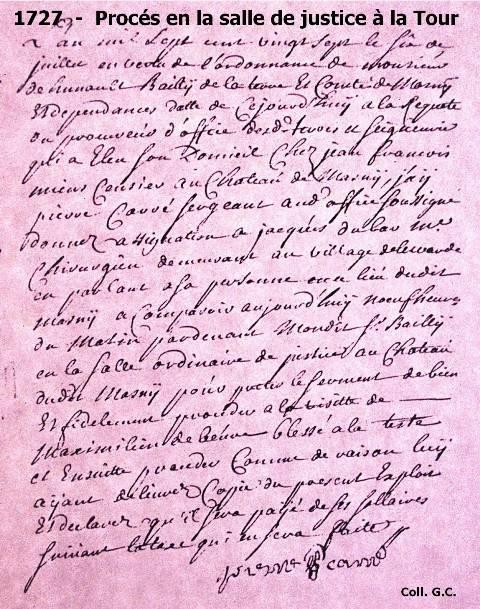 1727 - Procés en la salle de justice à la Tour
L an mil Sept cent vingt Sept le
juillet en vertu de l'ordonnance de monsieur
de hunault Bailly de la terre Et Comté de Masny
Et dependances datte de Cejourd'huy a la Requete
du procureur d'office desd terres et Seigneurie
qui a Eleu Son Domicil Chez jean francois
miens Censier au Chateau de Masny, jay
pierre Carré Sergeant aud office Soussigné
donnez assignation a jacques du lar me
Chirurgien demeurant au village de lewarde
en parlant a sa personne en ce lieu dudit
Masny a Comparoir aujourd'huy noeuf heures
du Matin pardevant Mondit Sr Bailly
en la Salle ordinaire de justice au Chateau
dudit Masny pour preter le Serment de bien
Et fidelement proceder a la visitte de
Maximilien de blessé a la teste
et Ensuitte proceder Comme de raison luy
ayant delivrez Copie du present Exploit
Et declarez qu'il Sera payé de Ses Sallaires
Suivant la taxe qui en Sera faite
pierre Carré
Coll. G.C.